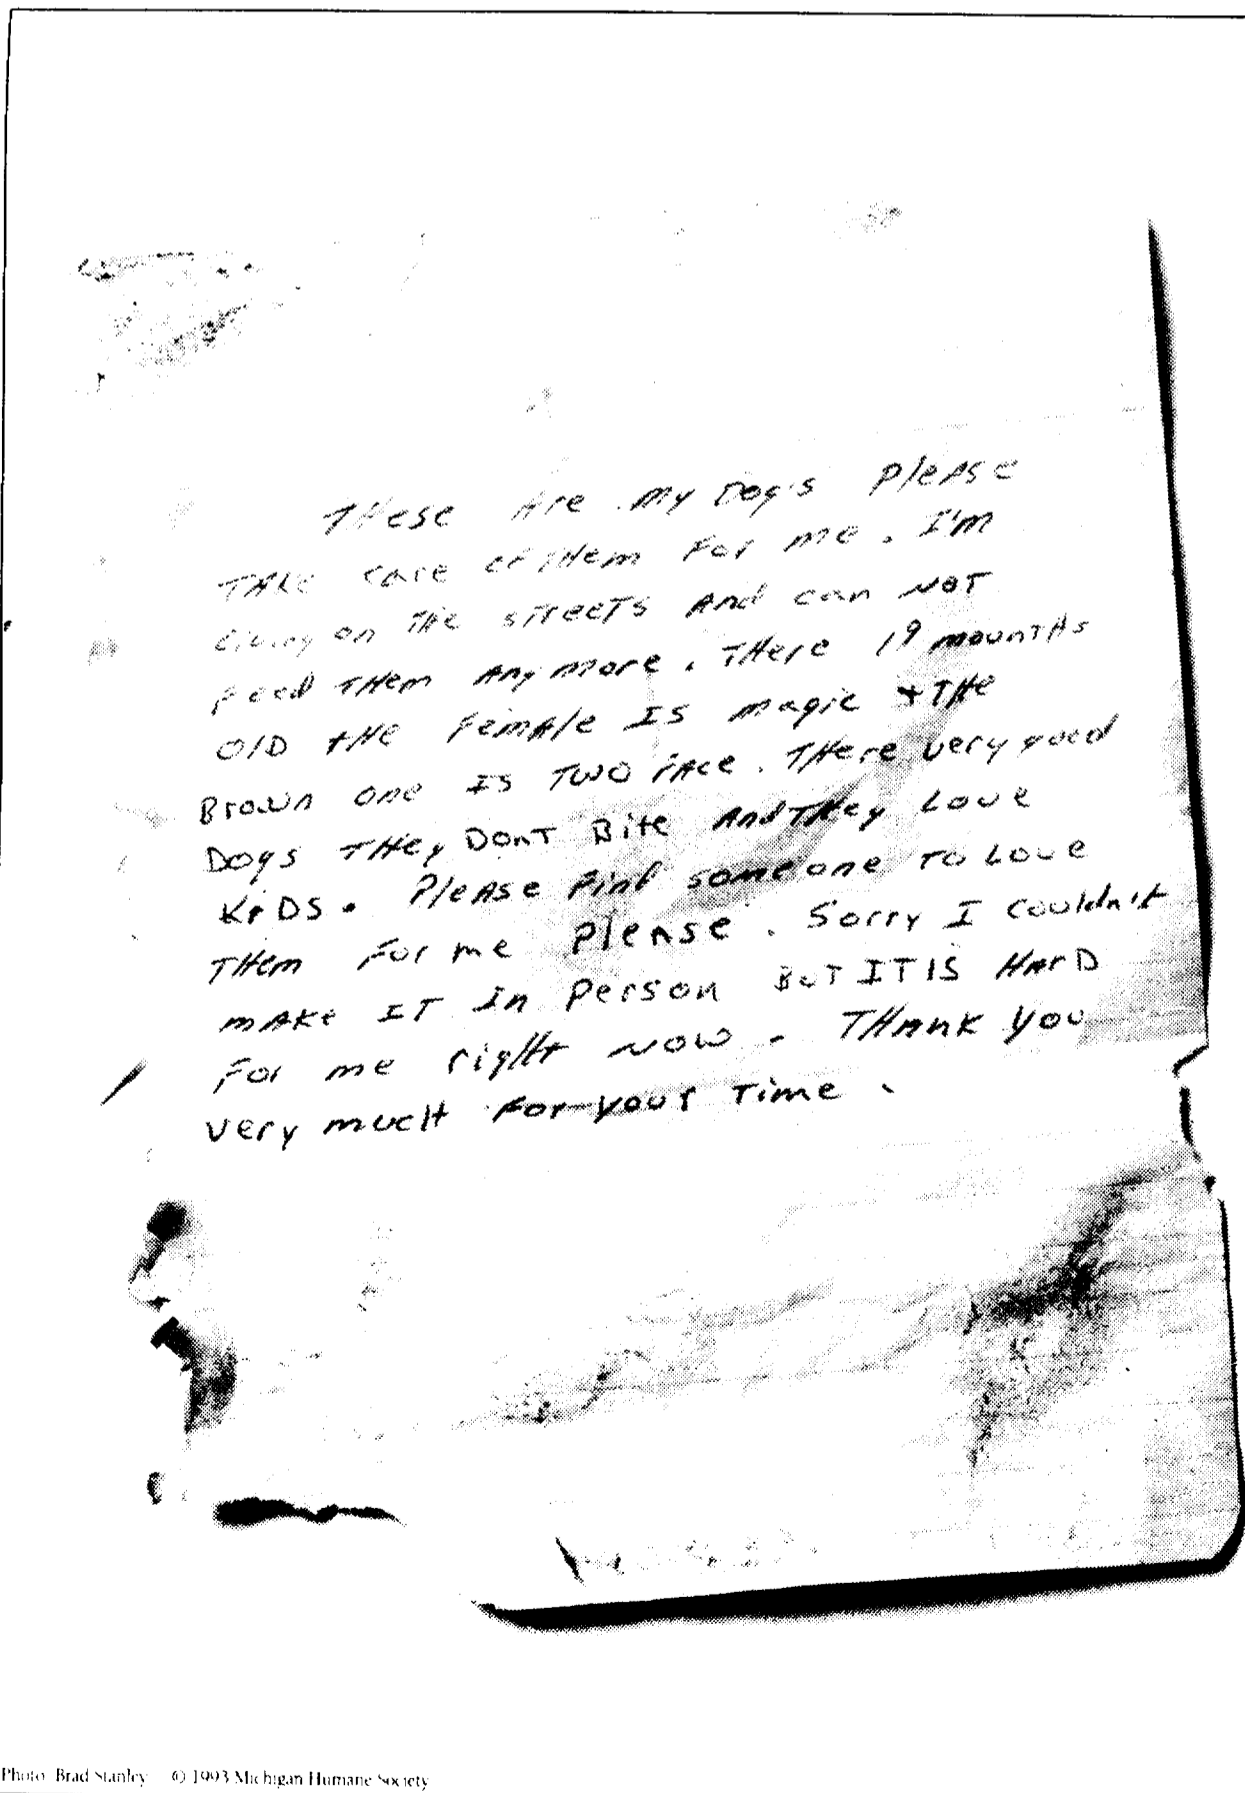 THese Are my Dog's PleAse
TAke care of tHem For me. I'm
Living on THe sTreeTs And can NOT
Feed THem Any more. THere 19 mounTHs
OlD tHe FemAle Is magic + THe
Brown one Is Two Face. THere very good
Dogs THey DonT Bite And THey Love
KiDS. PleAse Find someone To Love
THem For me PleAse. Sorry I couldn't
mAKe IT In Person BuT IT IS HArD
For me rigHt NOW. THAnk you
very mucH For your Time.
Photo: Brad Stanley © 1993 Michigan Humane Society